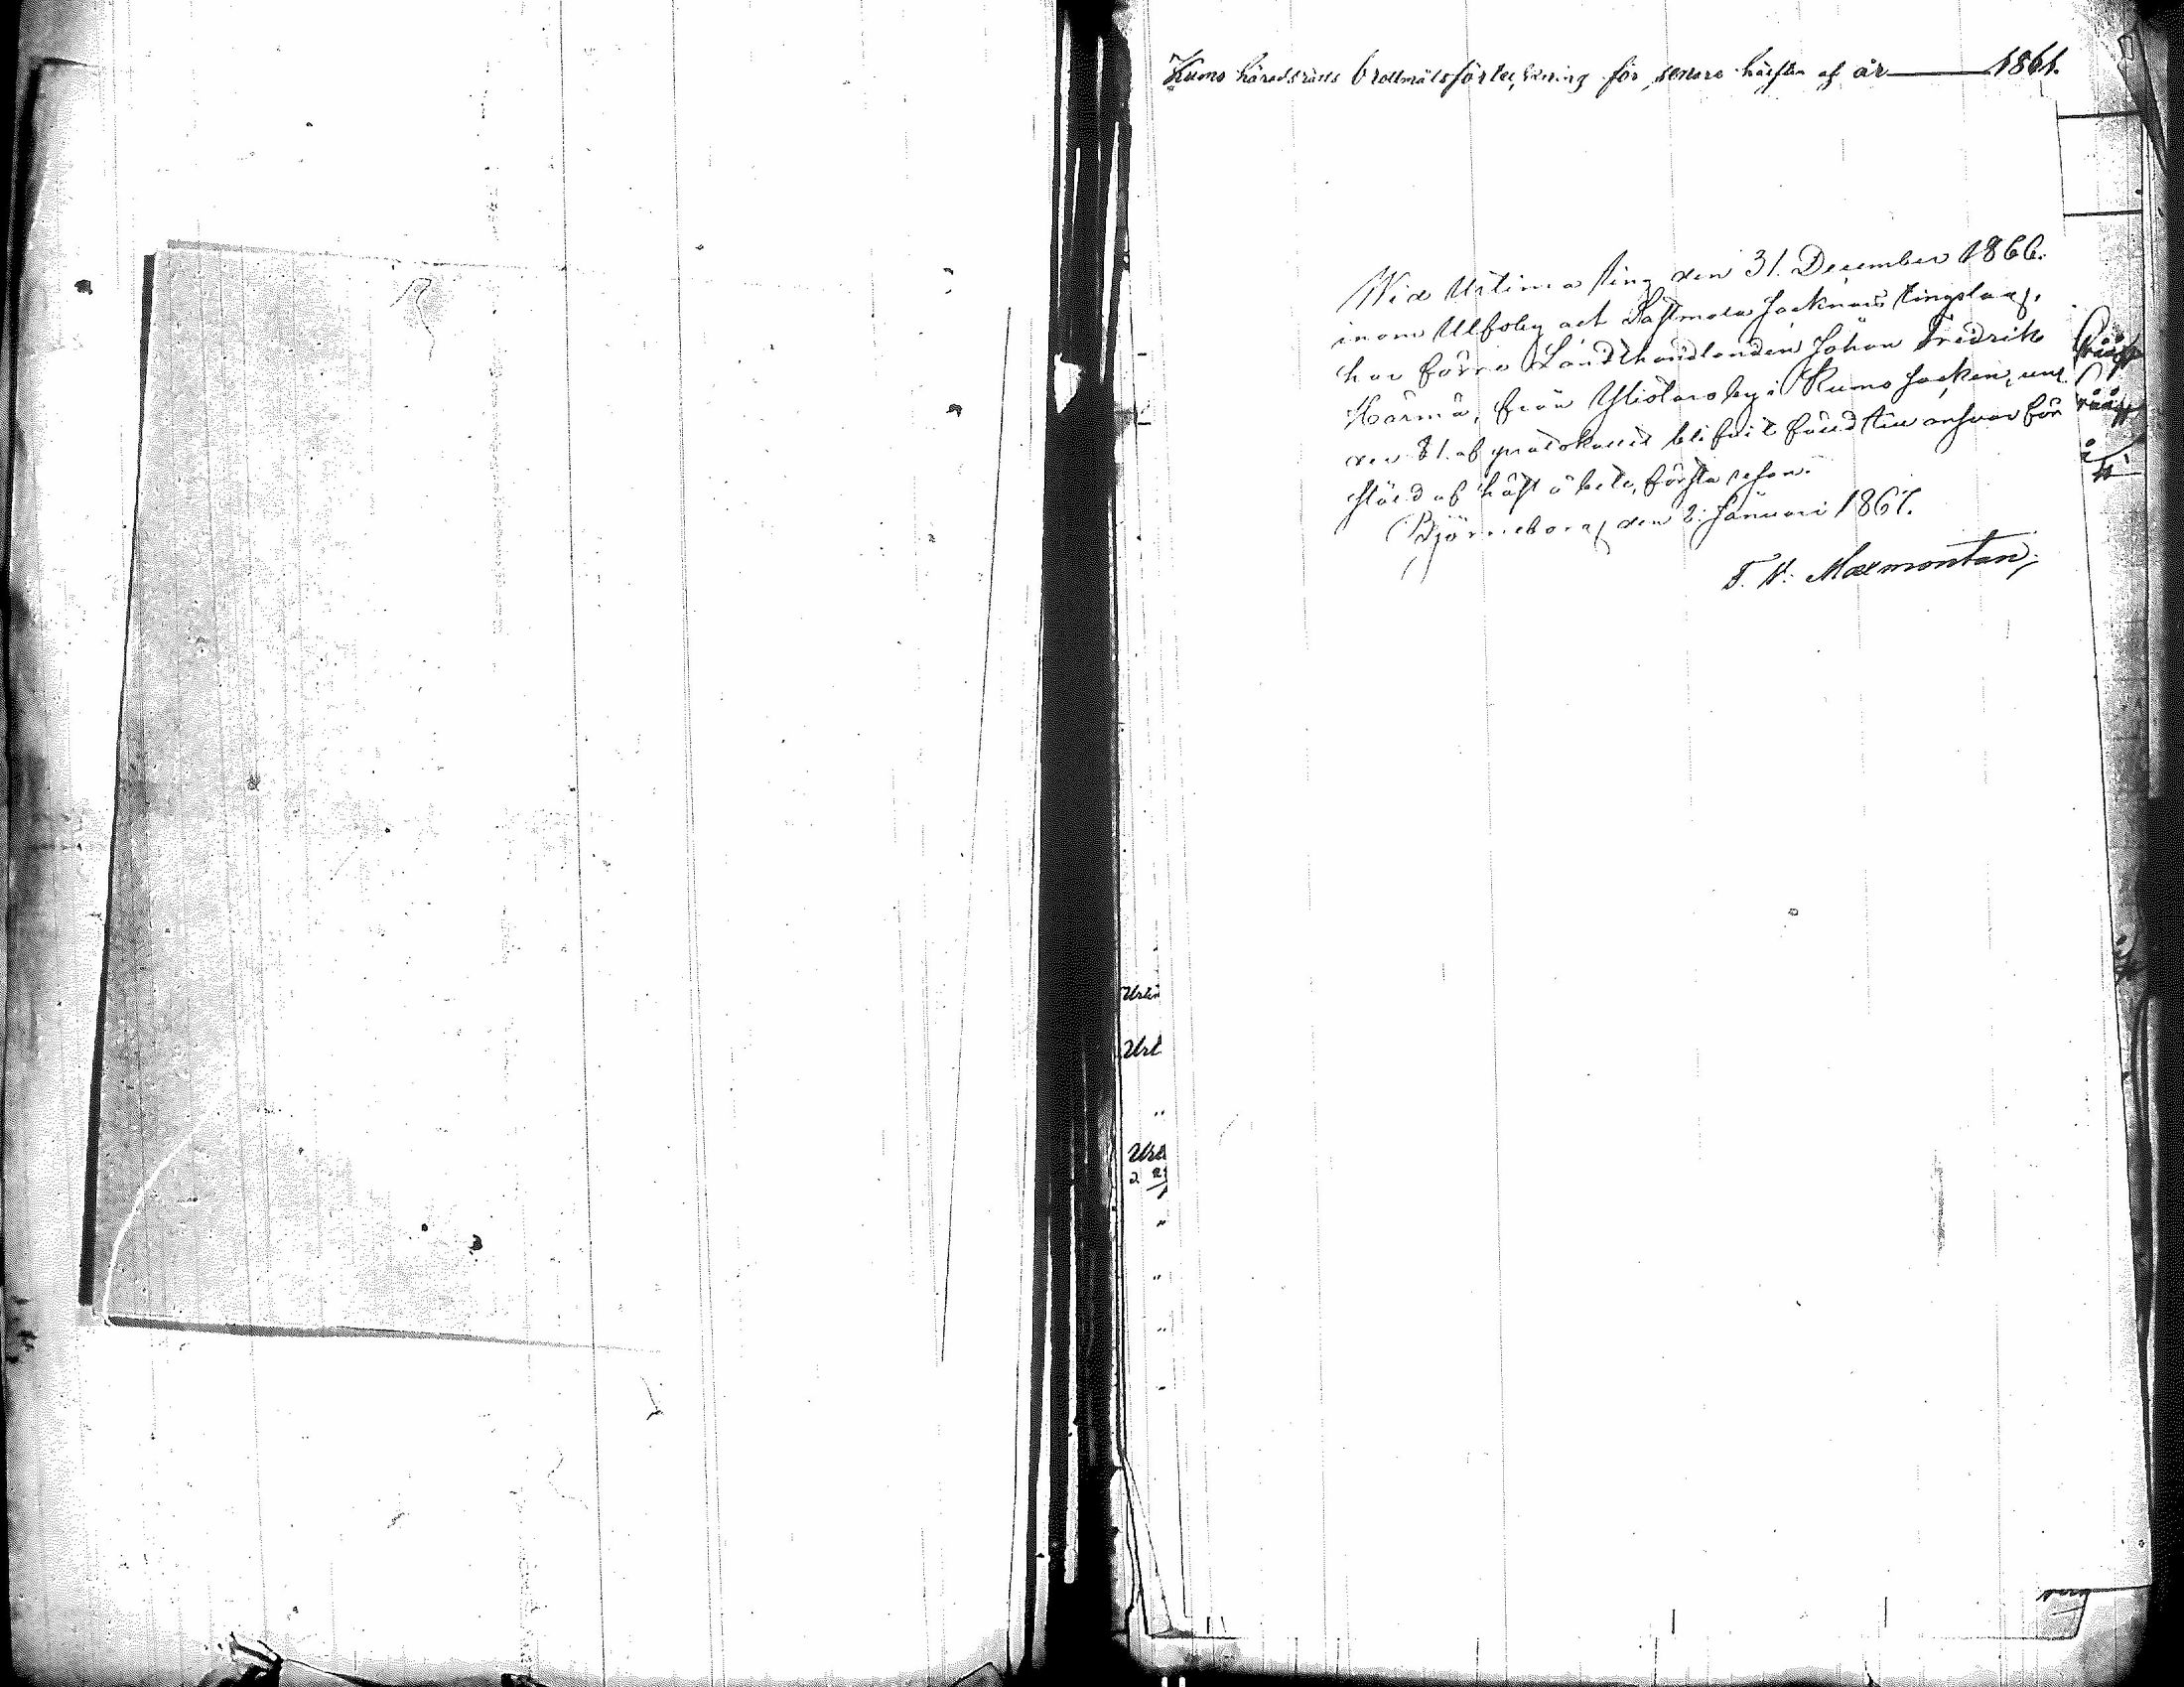 Kumo häradsrätts Brottmålsförteckning för senare hälften af år 1861.
Wid Urtima ting den 31. December 1866.
inom Ulfsby och Sastmola Socknars tingslag,
har förre Landthandlanden Johan Fredrik
Härmä, från Ylistaroby i Kumo Socken, und.
den 81. af protokollet blifvit fäld till ansvar för
stöld af häst å bete, första resan.
Björneborg den 2. Januari 1867.
T. W. Maxmontan,
Urtim
Urt
"
Urt
2
"
"
"
"